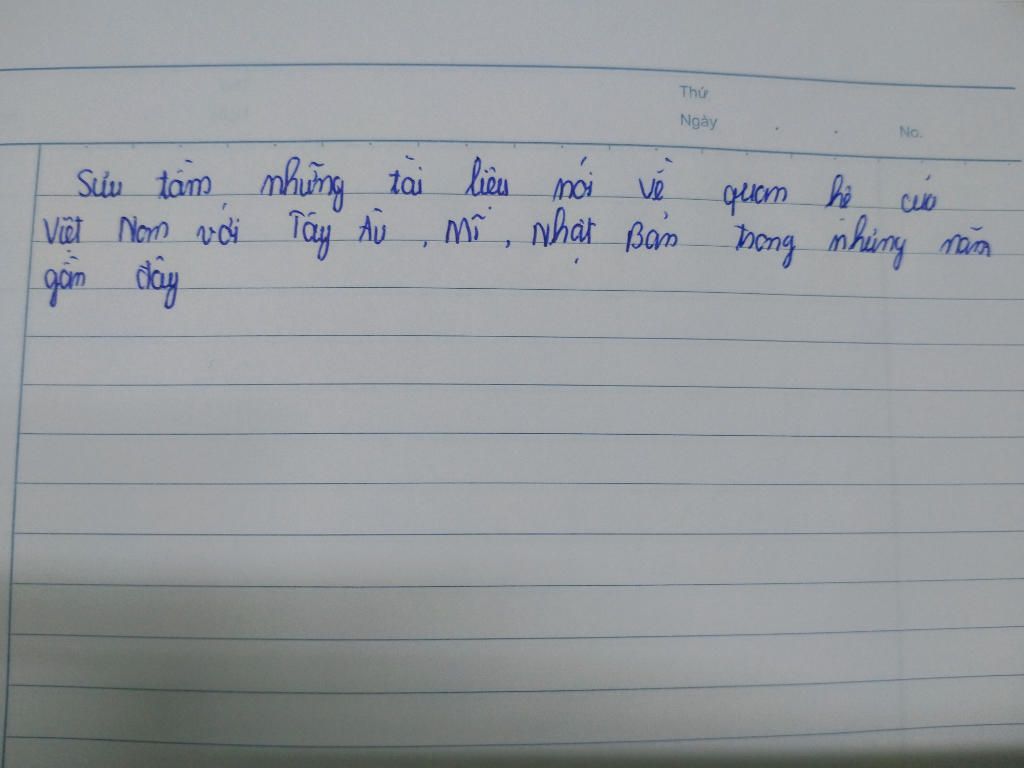 Thứ
Ngày . . No.
Sưu tầm những tài liệu nói về quan hệ của
Việt Nam với Tây Âu, Mĩ, Nhật Bản trong những năm
gần đây